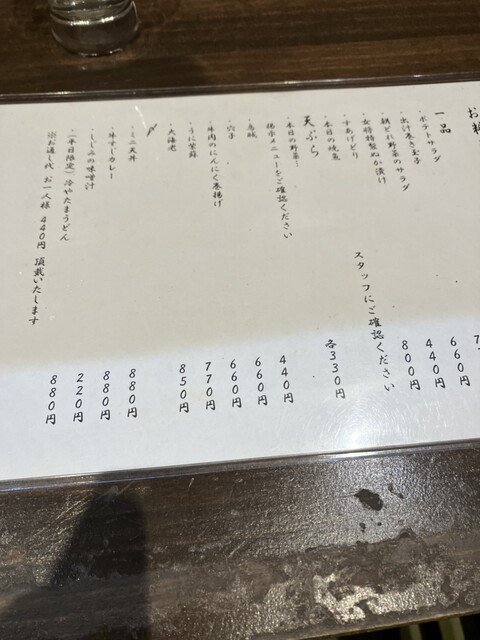 お料
一品
・ポテトサラダ
・出汁巻き玉子
・朝どれ野菜のサラダ 660円
・女将特製ぬか漬け 440円
・すあげどり 800円
・本日の焼魚 スタッフにご確認ください
天ぷら
・本日の野菜 各330円
掲示メニューをご確認ください
・烏賊 440円
・穴子 660円
・牛肉のにんにく巻揚げ 660円
・うに紫蘇 770円
・大海老 850円
〆
・ミニ天丼 880円
・牛すじカレー 880円
・しじみの味噌汁 220円
・冷やたまうどん 880円
※お通し代 お一人様 440円 頂戴いたします